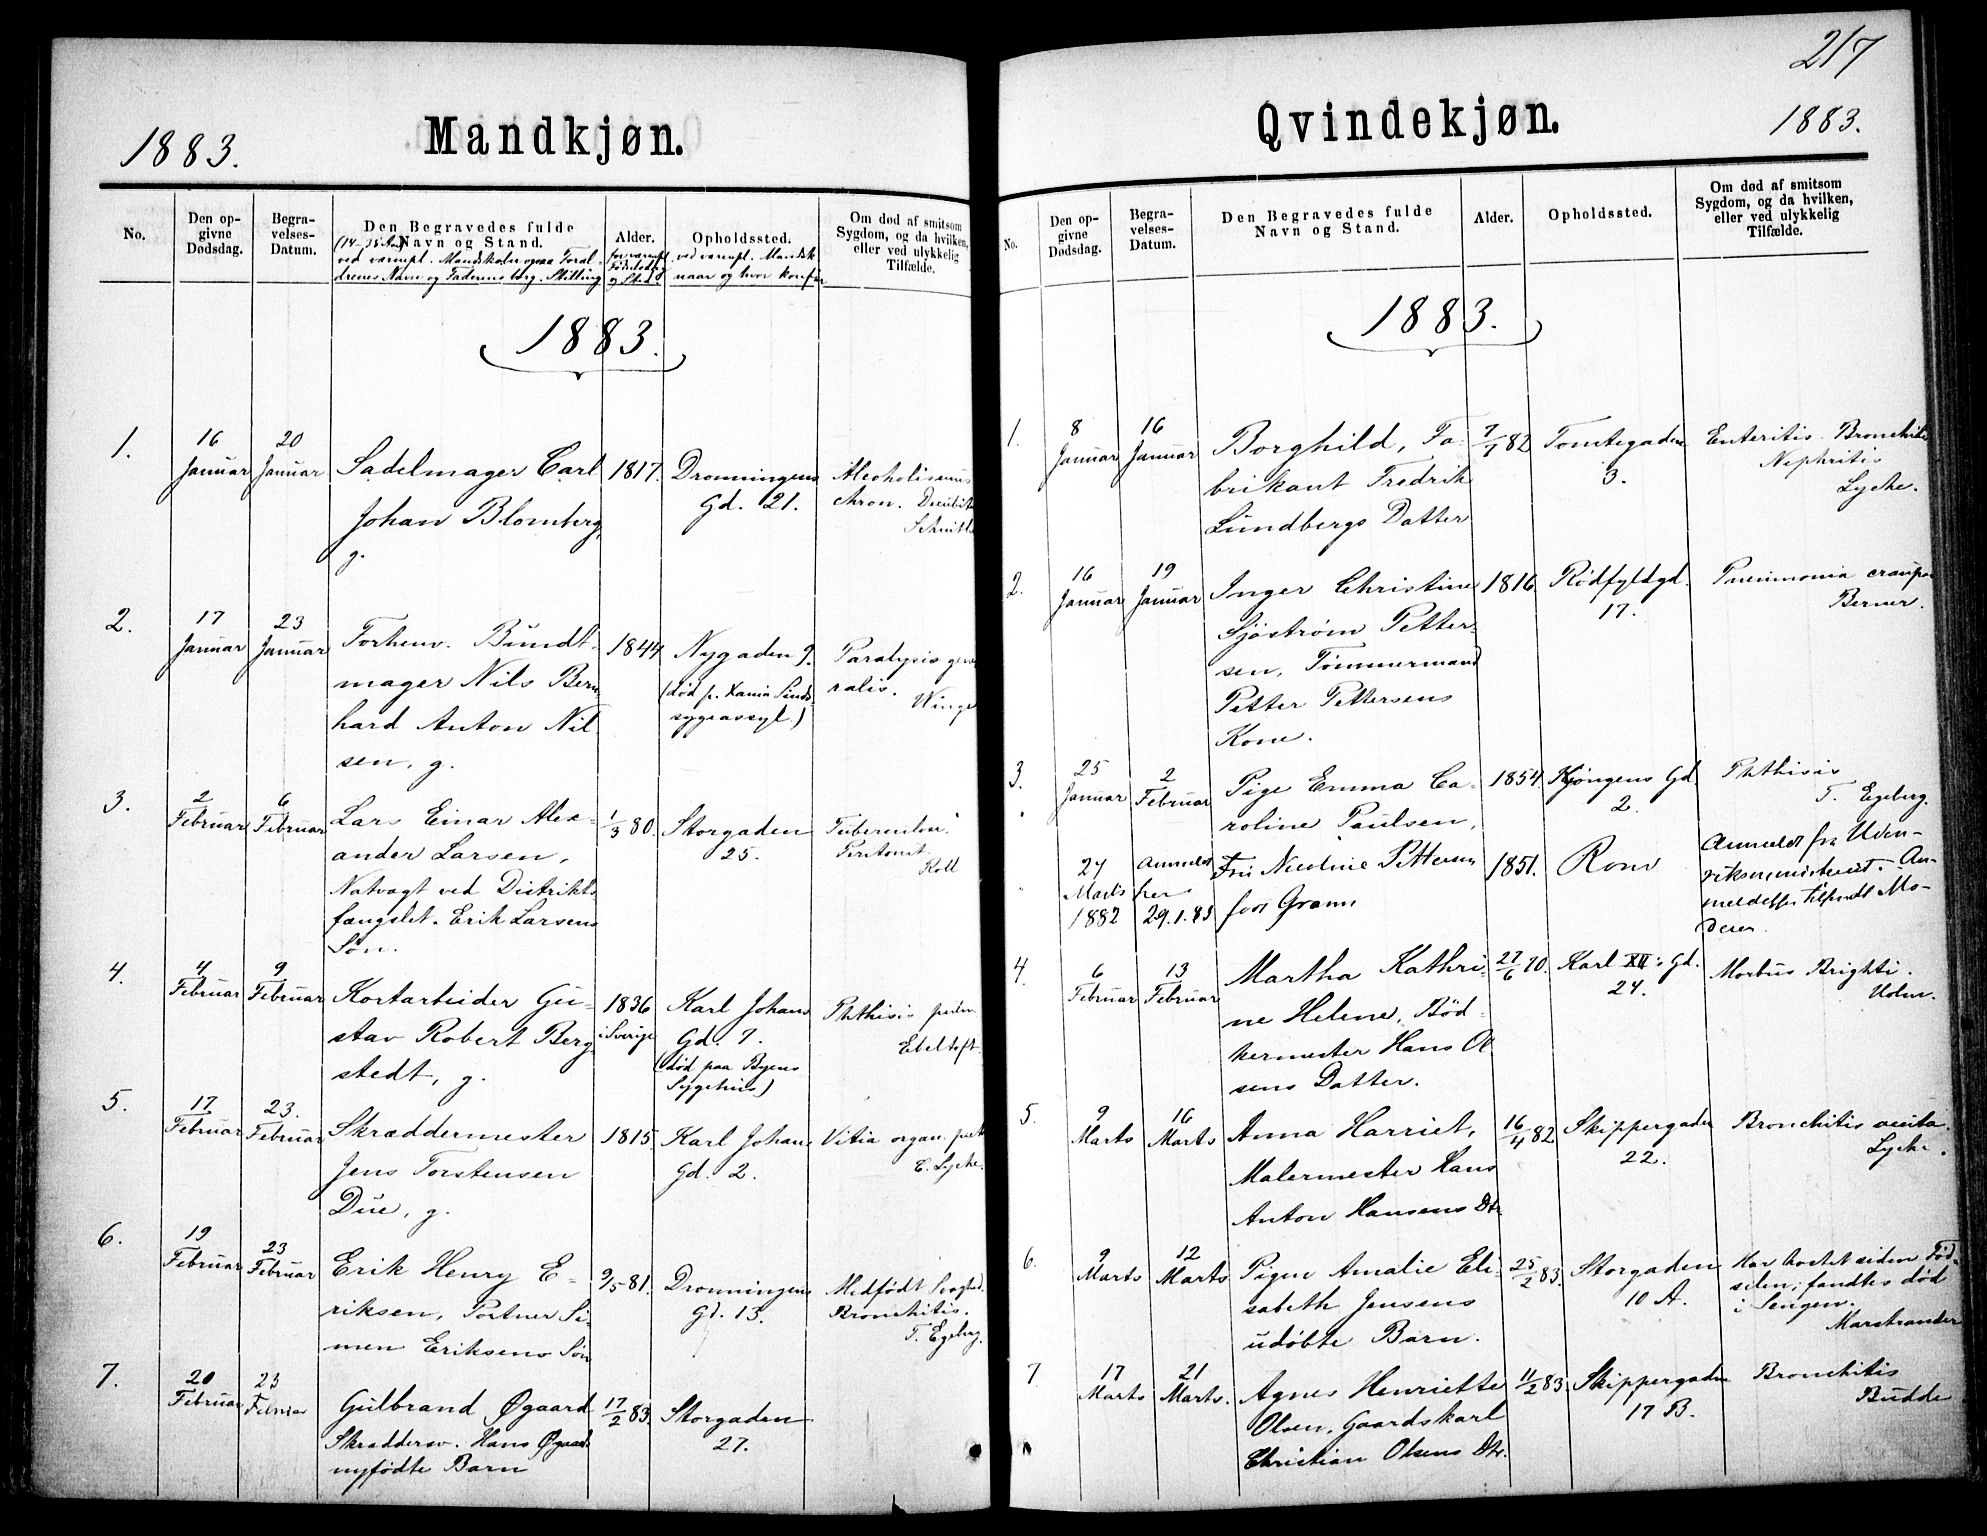 217
1883.
Mandkjøn.
No.
Den op-
givne
Dødsdag.
Begra-
velses-
Datum.
Den Begravedes fulde
Navn og Stand.
(14-18 Aar
ved værnepl. Mandskaber ogsaa Foræl-
drenes Navn og Faderens borg. Stilling
Alder.
for værnepl.
Fødselsd.
og Sted
Opholdssted.
ved værnepl. Mandsk
naar og hvor konfir
Om død af smitsom
Sygdom, og da hvilken,
eller ved ulykkelig
Tilfælde.
1883.
1.
16
Januar
20
Januar
Sadelmager Carl
Johan Blomberg,
g.
1817.
Dronningens
Gd. 21.
Alcoholismus
chron. Decubit
2.
17
Januar
23
Januar
Forhenv. Bundt-
mager Nils Bern
hard Anton Nil
sen, g.
1844
Nygaden 9.
(død p. Kania Sinds
sygeasyl)
Paralysis gene
ralis.
Winge
3.
2
Februar
6
Februar
Lars Einar Alex-
ander Larsen,
Natvagt ved Distrikts
fængslet. Erik Larsens
Søn.
1/3 80.
Storgaden
25.
Tuberculos.
Peritonit.
Koll
4.
4
Februar
9
Februar
Kortarbeider Gu-
stav Robert Berg
stedt, g.
1836
i Sverige
Karl Johans
Gd. 7.
(død paa Byens
Sygehus)
Phthisis
Ebeltoft.
5.
17
Februar
23.
Februar
Skræddermester
Jens Torstensen
Due, g.
1815.
Karl Johans
Gd. 2.
Vitia organ.
E. Lyche.
6.
19
Februar
23
Februar
Erik Henry E-
riksen, Portner Si-
men Eriksens Søn
9/5 81.
Dronningens
Gd. 13.
Medfødt Svaghed.
Bronchitis.
T. Egeberg.
7.
20
Februar
23
Februar
Gulbrand Øgaard
Skræddersv. Hans Øgaards
nyfødte Barn
17/2 83.
Storgaden
27.
Qvindekjøn.
1883.
No.
Den op-
givne
Dødsdag.
Begra-
velses-
Datum.
Den Begravedes fulde
Navn og Stand.
Alder.
Opholdssted.
Om død af smitsom
Sygdom, og da hvilken,
eller ved ulykkelig
Tilfælde.
1883.
1.
8
Januar
16
Januar
Borghild, Fa-
brikant Fredrik
Lundbergs Datter
7/7 82
Tomtegaden
3.
Enteritis. Bronchitis
Nephritis
Lyche.
2.
16
Januar
19
Januar
Inger Christine
Sjøstrøm Petter-
sen, Tømmermand
Petter Pettersens
Kone.
1816
Rødfyldgd.
17.
Pneumonia croupos
Berner.
3.
25
Januar
2
Februar
Pige Emma Ca-
roline Paulsen,
1854.
Kongens Gd
2.
Phthisis
T. Egeberg.
27
Marts
1882
anmeldt
her
29.1.83
Fru Nicoline Pettersen
født Gram
1851.
Rom
Anmeldt fra Uden-
riksministeriet. An-
meldelsen tilsendt Mo-
deren.
4.
6
Februar
13
Februar
Martha Kathri-
ne Helene, Bød-
kermester Hans Ol
sens Datter.
27/6 70.
Karl XII's Gd.
24.
Morbus Brighti.
5.
9
Marts
16
Marts
Anna Harriet,
Malermester Hans
Anton Hansens Dtr
16/4 82
Skippergaden
22.
Bronchitis acuta.
Lyche.
6.
9
Marts
12
Marts
Pigen Amalie Eli-
sabeth Jensens
udøbte Barn.
25/2 83.
Storgaden
10 A.
Har hostet siden Fød-
selen; fandtes død
i Sengen.
Marstrander
7.
17
Marts
21
Marts.
Agnes Henriette
Olsen, Gaardskarl
Christian Olsens Dtr.
11/2 83.
Skippergaden
17 B.
Bronchitis
Budde